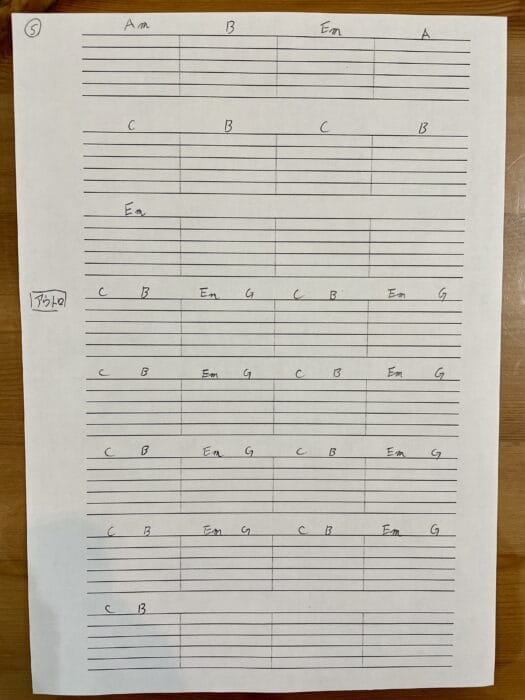 ⑤ Am B Em A
C B C B
Em
アウトロ C B Em G C B Em G
C B Em G C B Em G
C B Em G C B Em G
C B Em G C B Em G
C B